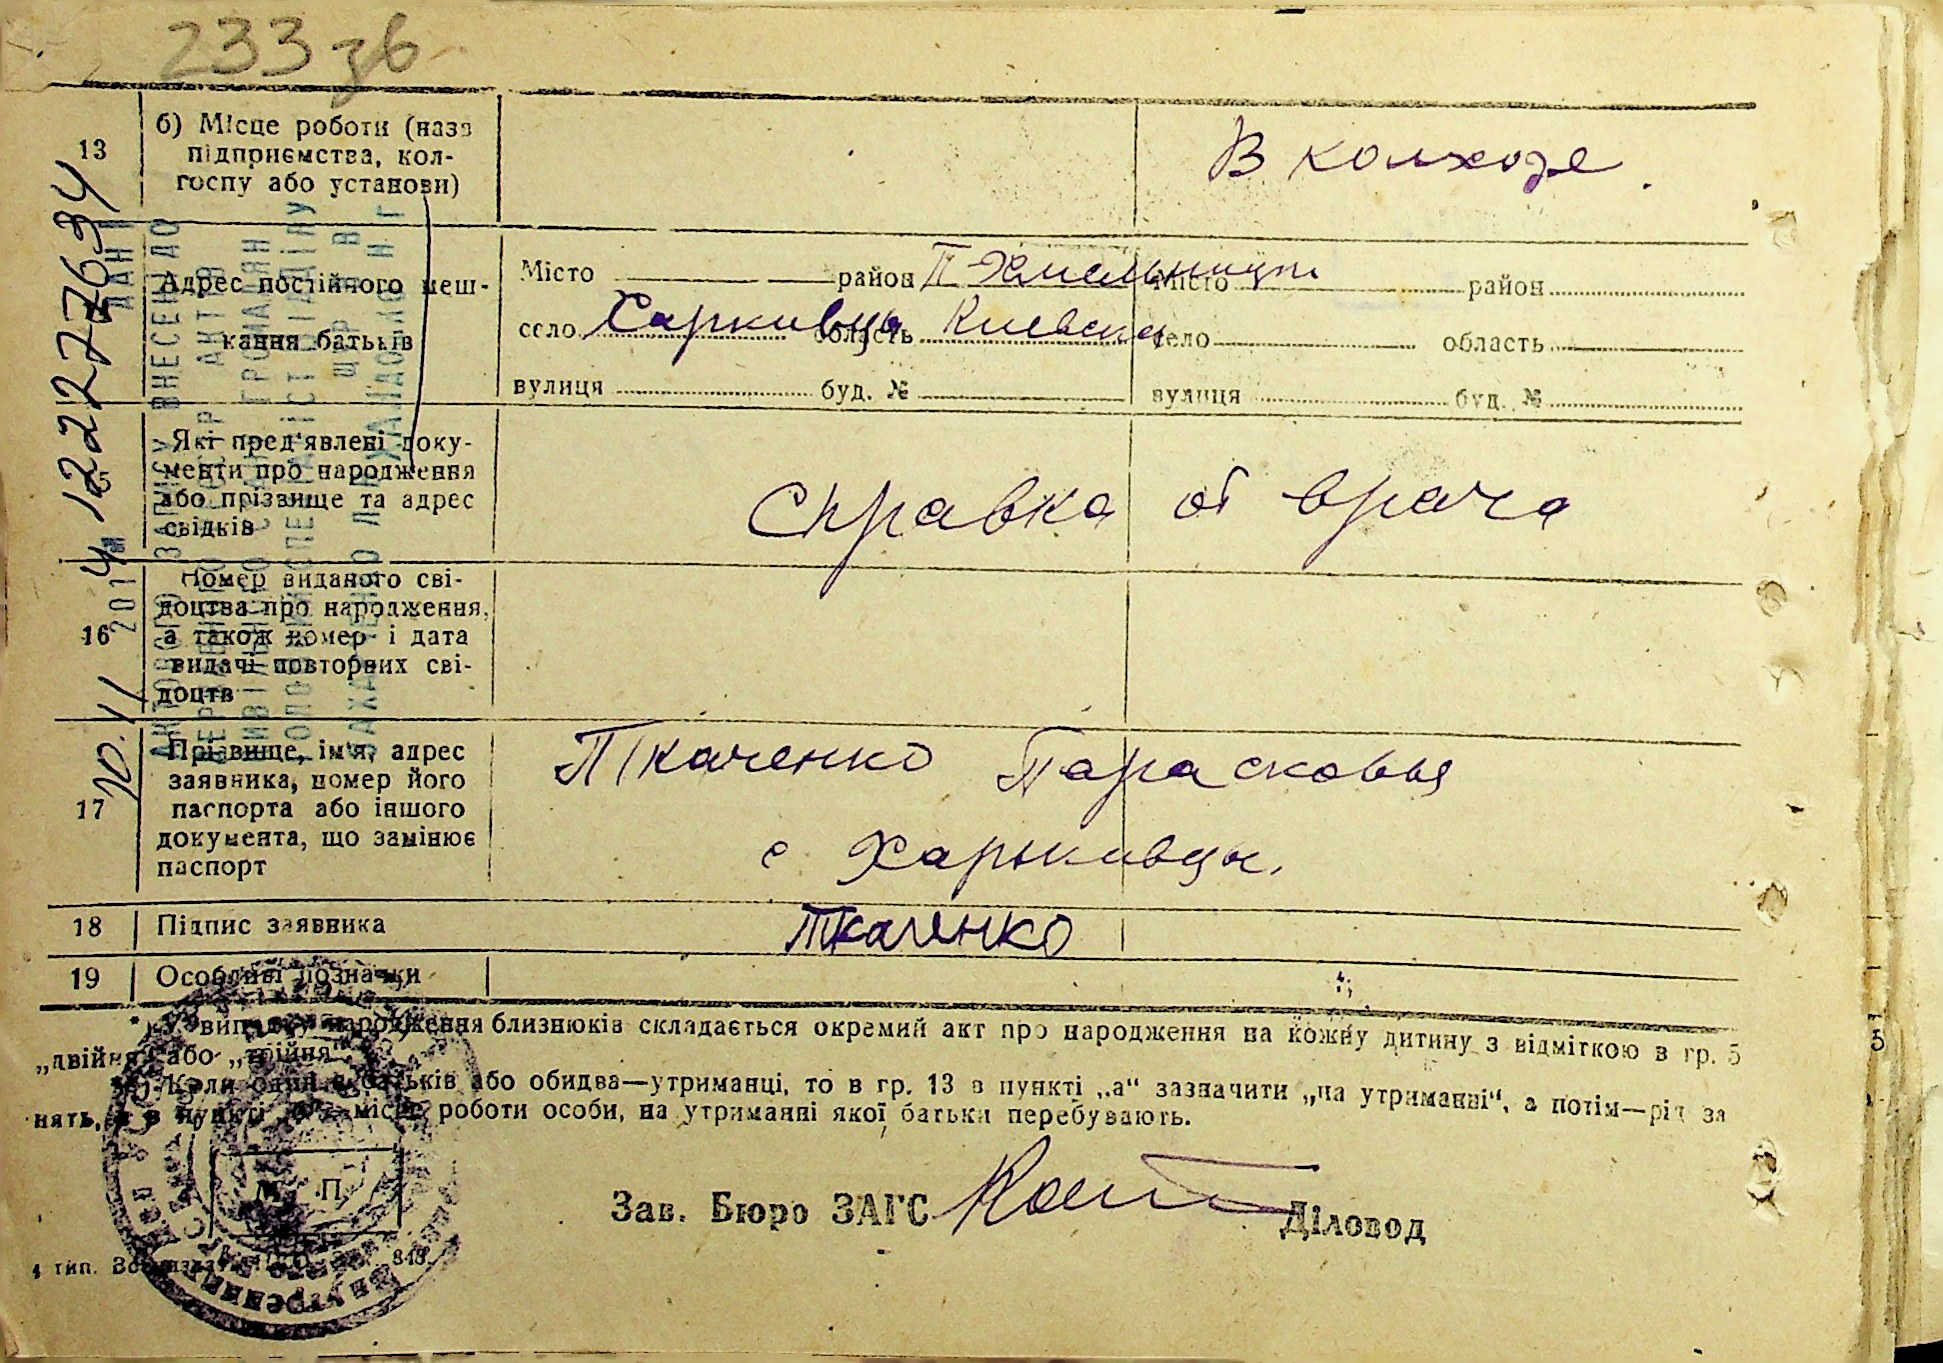 233 зв
13
б) Місце роботи (назв
підприємства, кол-
госпу або установи)
В колхозе
Адрес постійного меш-
кання батьків
Місто район П-Хмельницк Місто район
село Харкивцы область Киевская село область
вулиця буд. № вулиця буд. №
Які пред'явлені доку-
менти про народження
або прізвище та адрес
свідків
Справка от врача
16
Номер виданого сві-
доцтва про народження,
а також номер і дата
видачі повторних сві-
доцтв
17
Прізвище, ім'я, адрес
заявника, номер його
паспорта або іншого
документа, що замінює
паспорт
Ткаченко Парасковья
с Харькивцы.
18 Підпис заявника Ткаченко
19 Особливі позначки
*) У випадку народження близнюків складається окремий акт про народження на кожну дитину з відміткою в гр. 5
„двійня" або „трійня"
**) Коли один з батьків або обидва—утриманці, то в гр. 13 в пункті „а" зазначити „на утриманні", а потім—рід за
нять, а в пункті місце роботи особи, на утриманні якої батьки перебувають.
М. П.
Зав. Бюро ЗАГС Діловод
4 тип.
10.11 2014 12227634